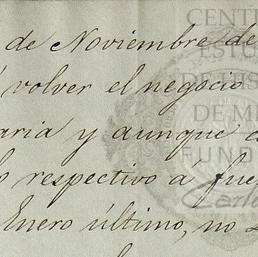 de Noviembre de
volver el negocio
aria y aunque
respectivo á
Enero último, no
CENT
ES
DE
DE M
FUND
Carl